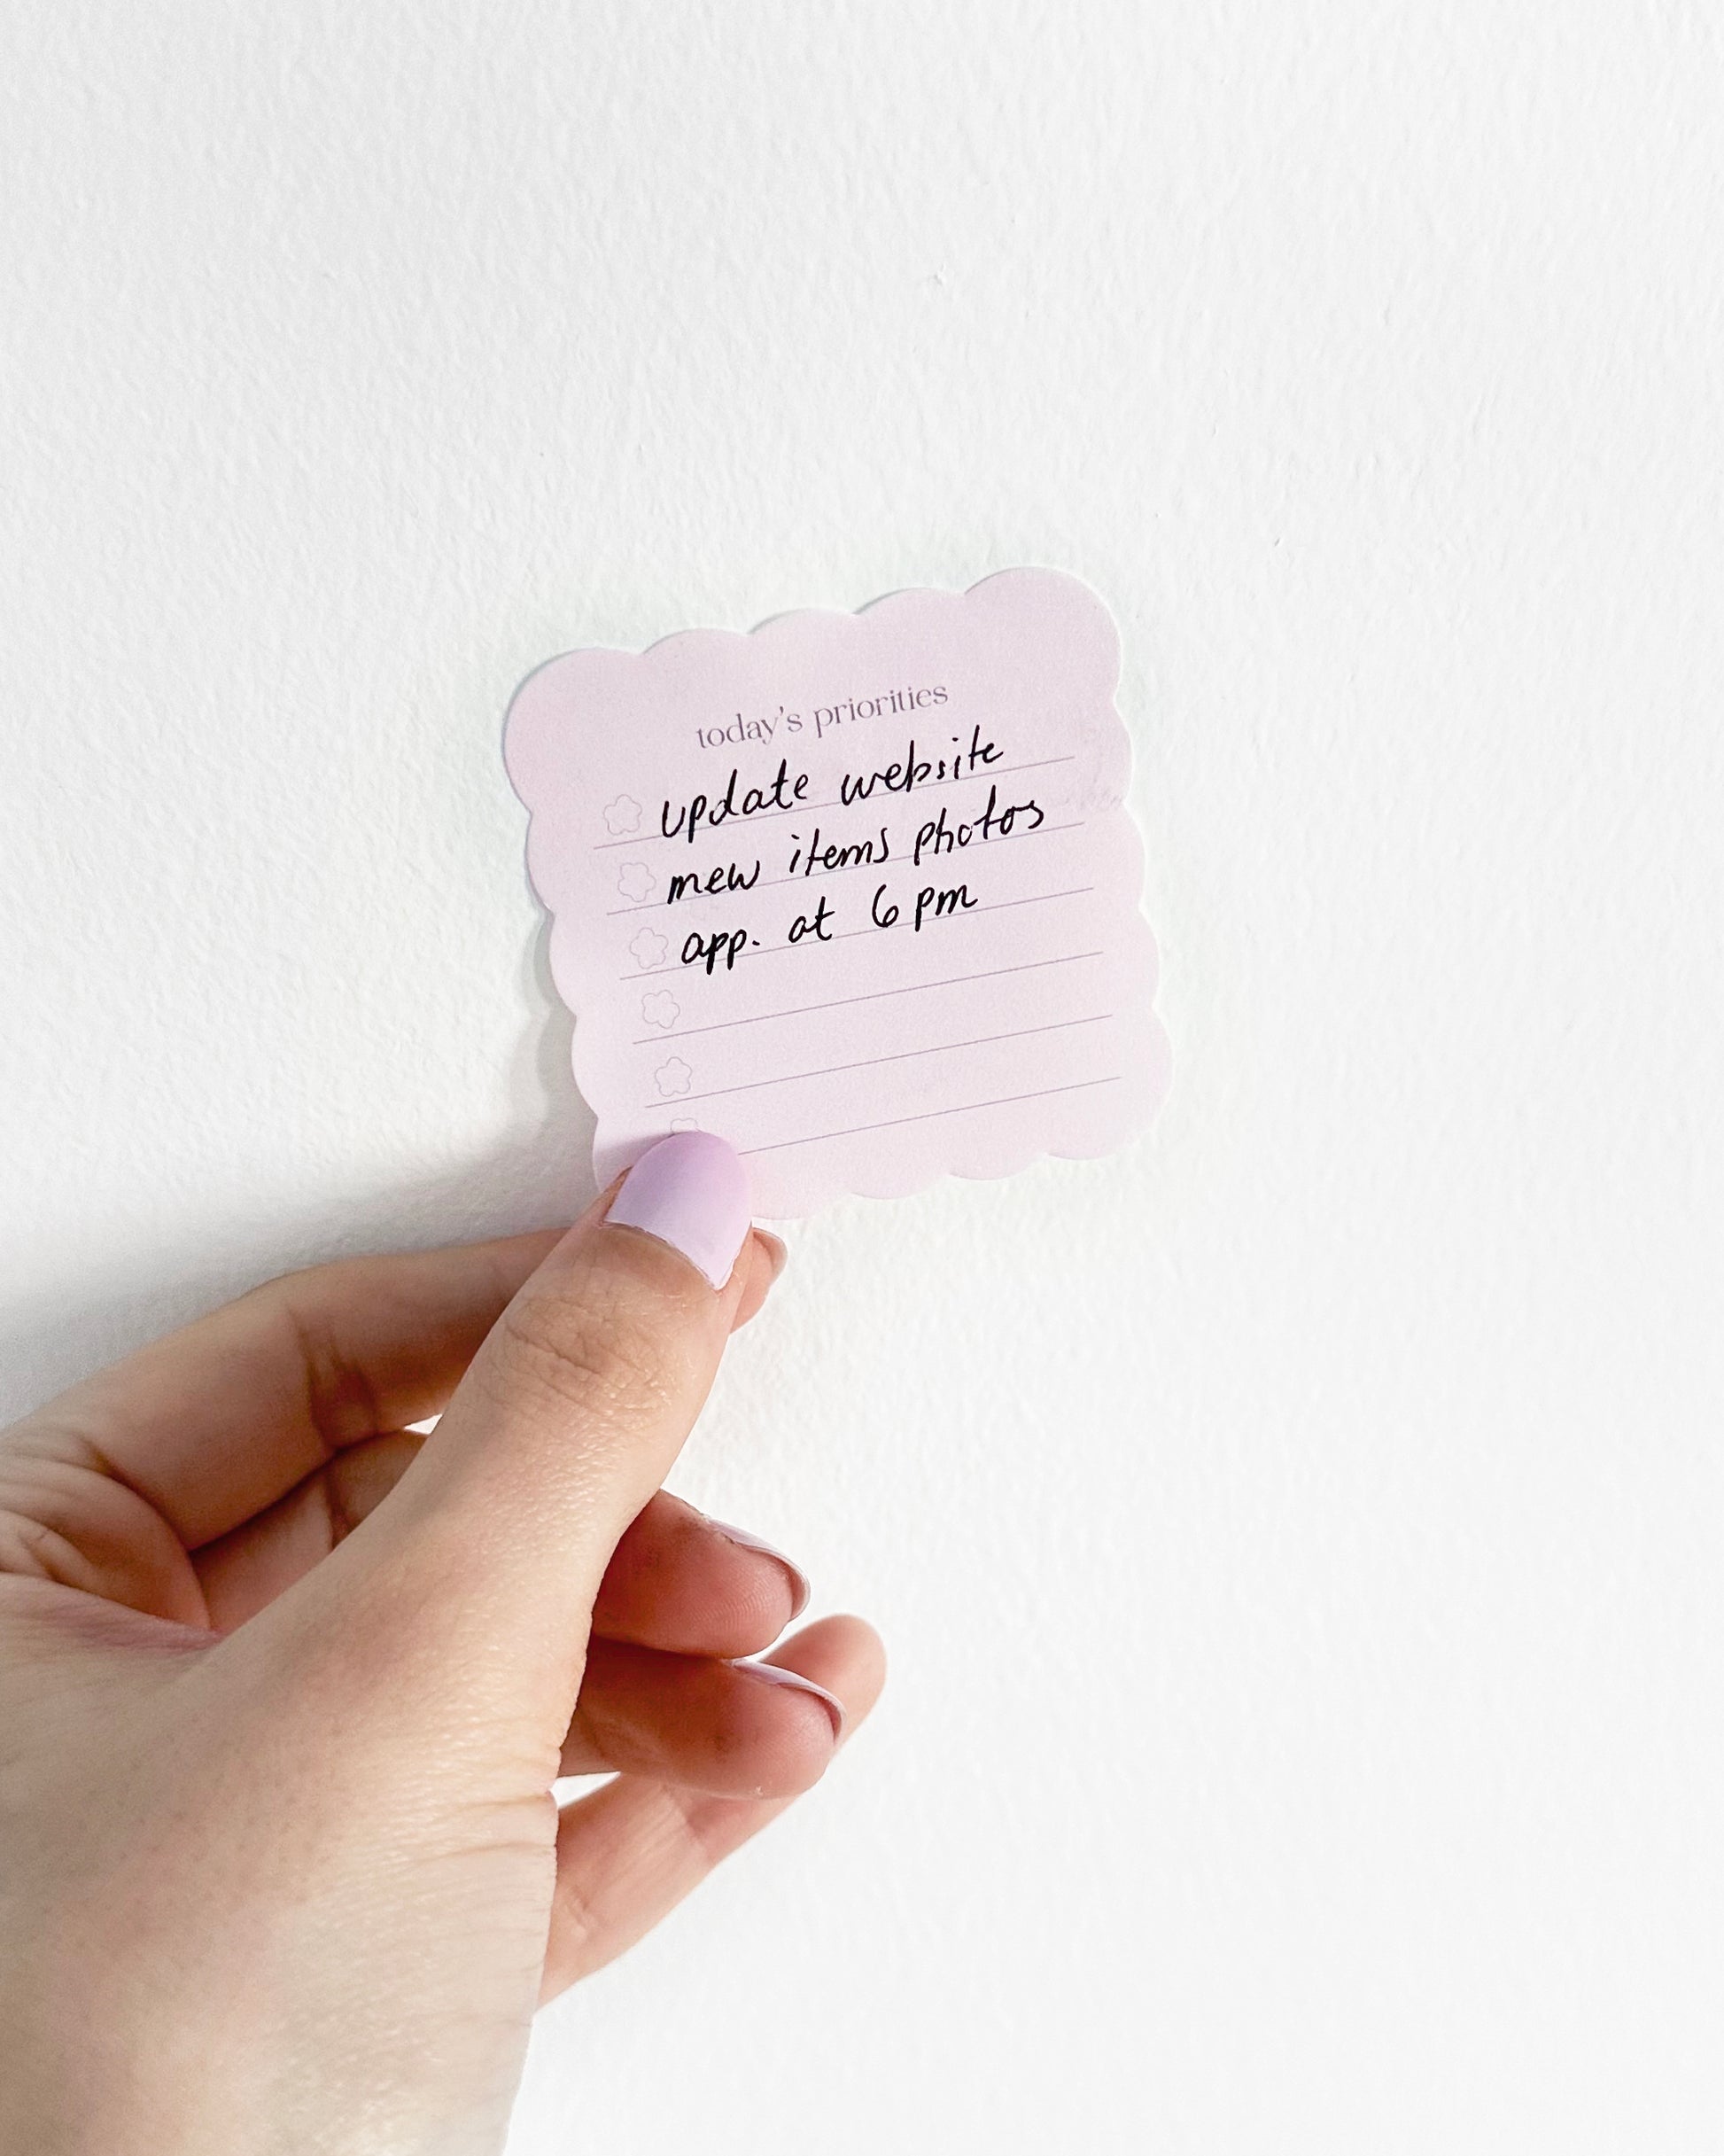 today's priorities
update website
new items photos
app. at 6pm